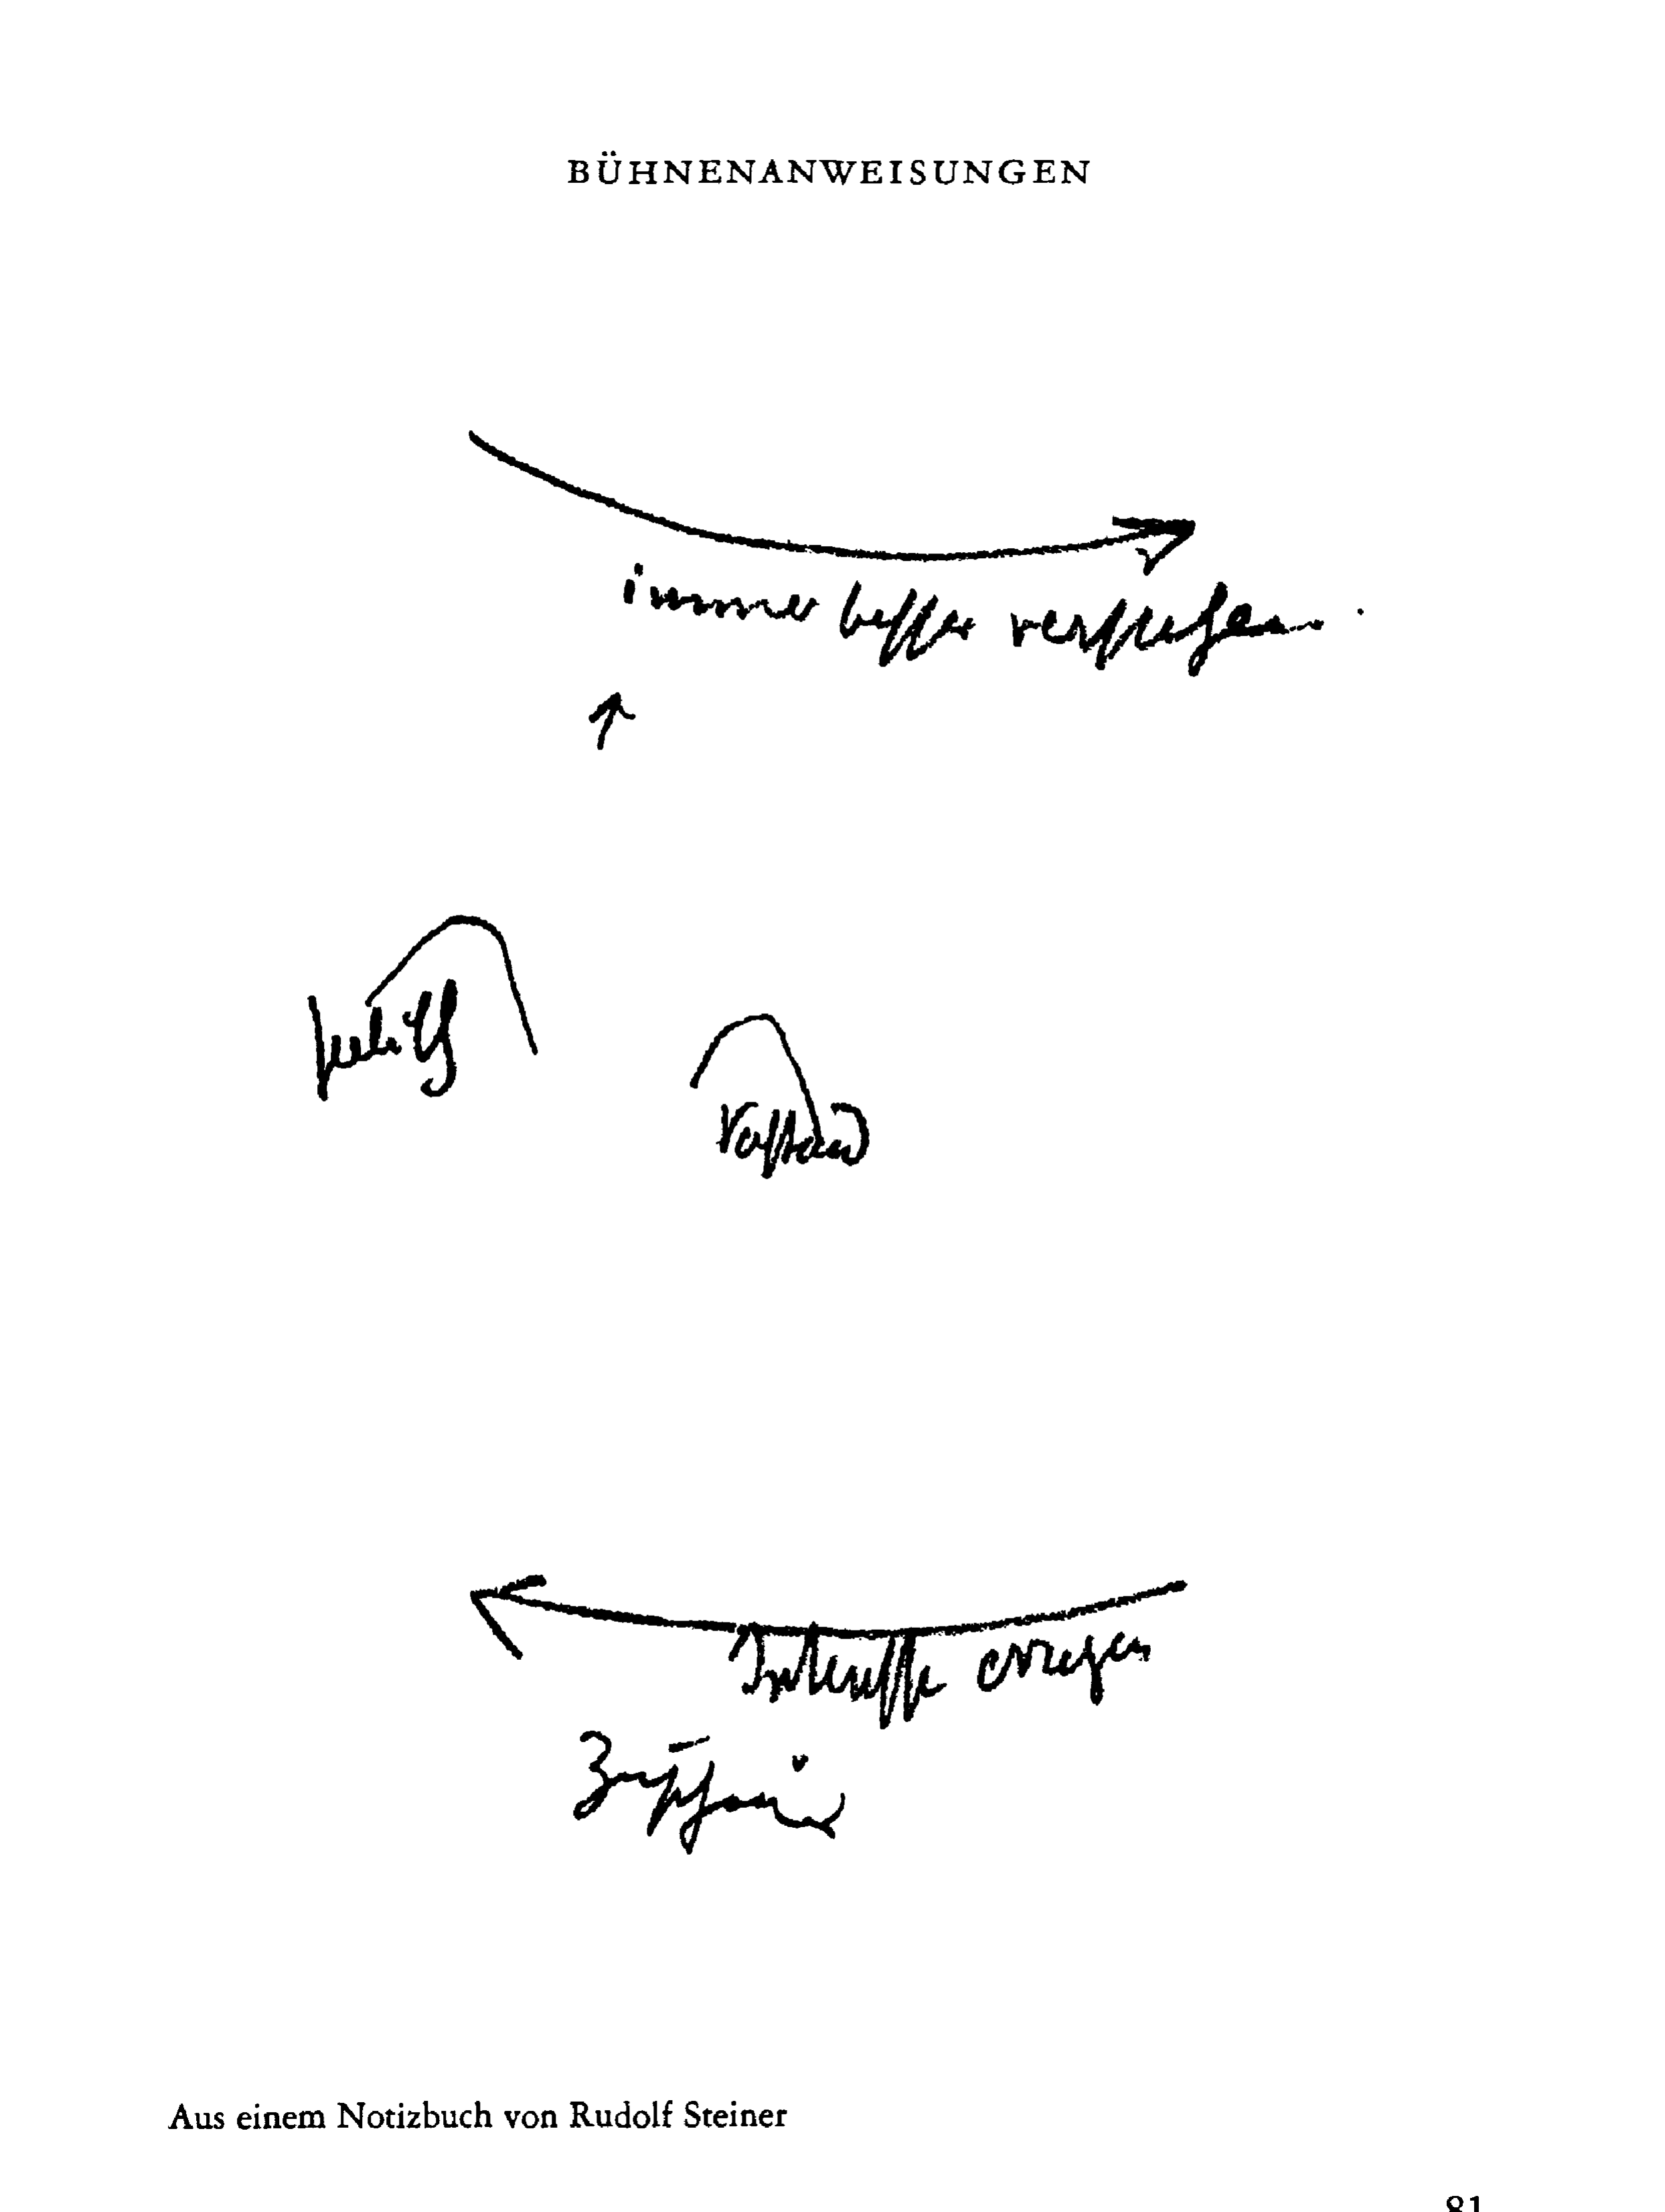 BÜHNENANWEISUNGEN
immer besser verstehen.
Verstand
Interesse erregen
Aus einem Notizbuch von Rudolf Steiner
81